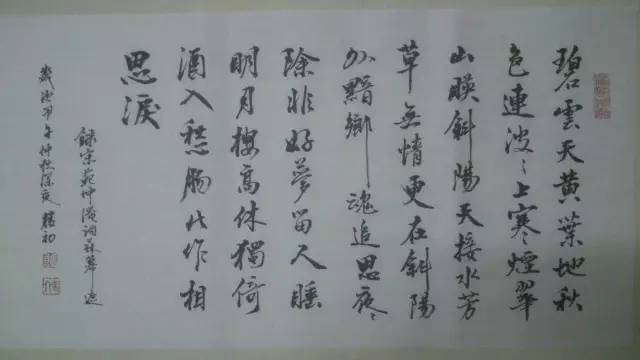 碧雲天黃葉地秋
色連波〻上寒煙翠
山暎斜陽天接水芳
草無情更在斜陽
外黯鄉魂追思夜〻
除非好夢留人睡
明月樓高休獨倚
酒入愁腸化作相
思淚
録宋范仲淹詞蘇幕遮
歲次甲午仲秋深夜